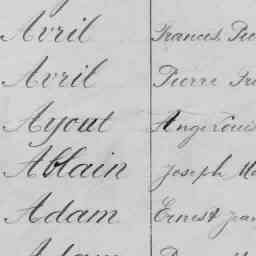 Avril Frances Pie
Avril Pierre Fra
Ayout Ange Louis
Ablain Joseph Ma
Adam Ernest Jean
Adam